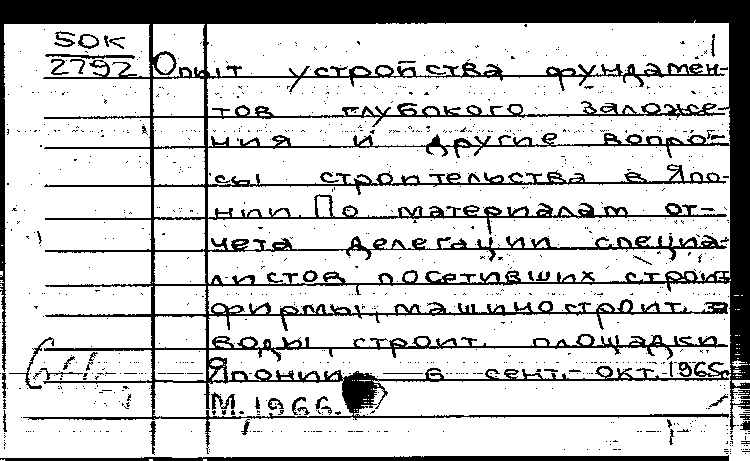 50К
2792 Опыт устройства фундамен-
тов глубокого заложе-
ния и другие вопро-
сы строительства в Япо-
нии. По материалам от-
чета делегации специа-
листов, посетивших строит
фирмы, машиностроит. за
воды, строит. площадки
Японии в сент.- окт. 1965.
М., 1966.